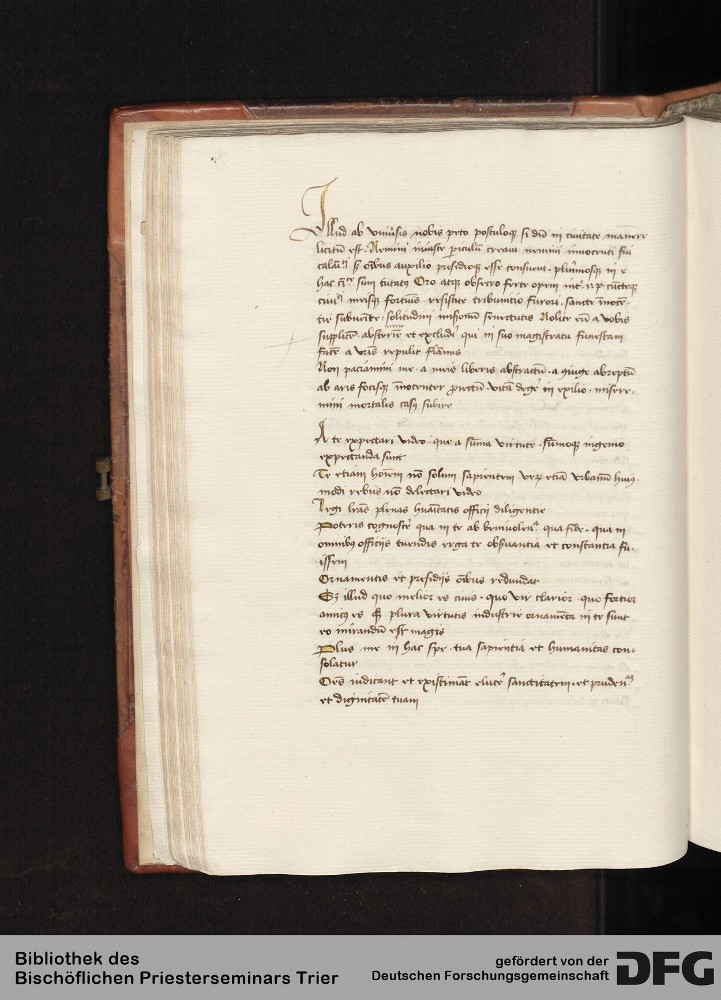 Illud ab vniuersis nobis peto postuloq; si diu in ciuitate manere
licitu est . Nemini iniuste periculu creaui nemini innocenti sui
auxilio presidioq; esse consueui . plurimosq; in
hac sum tutatq Oro atq; obsecro ferte opem
meisq; fortunis . resistite tribunitio furori . sancte inoce
tie subuenite . solitudini senectutis Nolite eu a vobis
supplice . et excludere qui in suo magistratu funestam
face a vris repulit flamis
Non paciamini me . a meis liberis abstractu . a giuge abreptu
ab aris focisq; inocenter vita dege in exilio . misere
mini mortalis casq subire
A te expectari video . que a suma virtute . sumoq; ingenio
expectanda sunt
Te etiam hoiem no solum sapientem etia vrbanu huiq
modi rebus no delectari video
legi lras plenas huaitatis officii diligentie
Poteris cognosce qua in te ab beniuolen qua fide . qua in
omnibq officijs tuendis erga te obseruantia et constantia fu
issem
Ornamentis et presidijs oibus redundat
Sz illud quo melior es ciuis . quo vir clarior . quo fortior
amicq es plura virtutis industrie ornameta in te sunt
eo mirandu est magis
Plus me in hac spe . tua sapientia et humanitas con
solatur
Oes iudicant et existimat eluce sanctitatem . et pruden
et dignitate tuam
Bibliothek des
Bischöflichen Priesterseminars Trier
gefördert von der
Deutschen Forschungsgemeinschaft
DFG